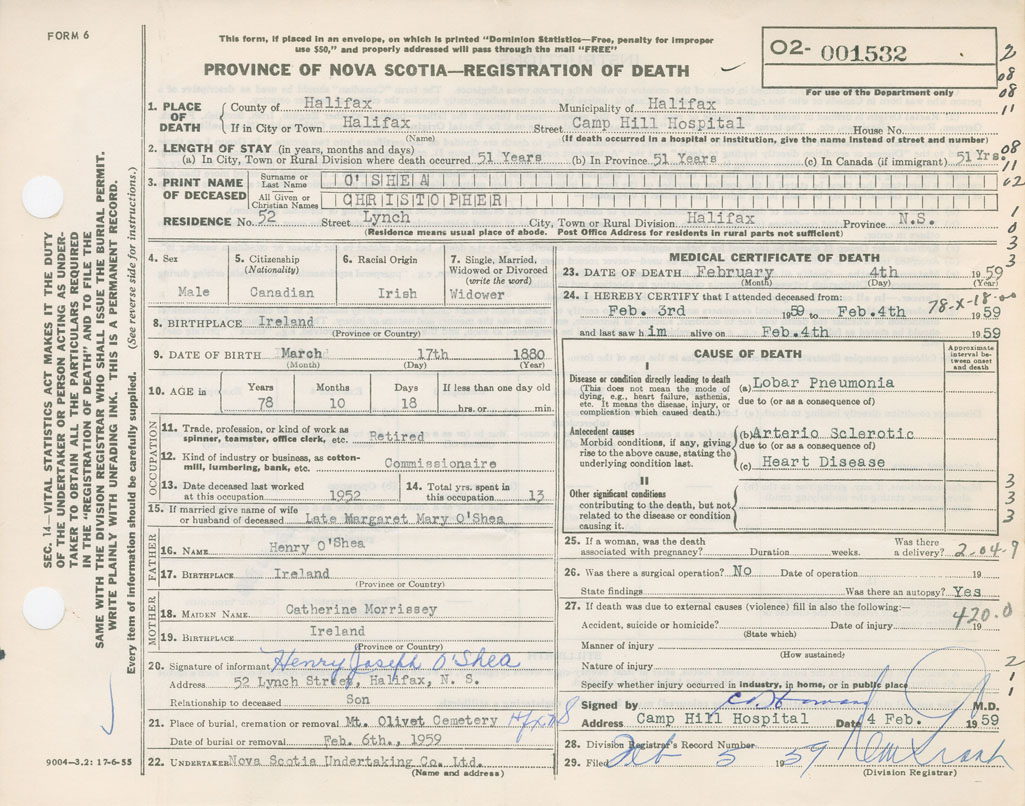 FORM 6
This form, if placed in an envelope, on which is printed "Dominion Statistics—Free, penalty for improper
use $50," and properly addressed will pass through the mail "FREE"
PROVINCE OF NOVA SCOTIA—REGISTRATION OF DEATH
O2- 001532
For use of the Department only
2
08
08
11
1. PLACE OF DEATH
County of Halifax Municipality of Halifax
If in City or Town Halifax Street Camp Hill Hospital House No.
(Name) (If death occurred in a hospital or institution, give the name instead of street and number)
2. LENGTH OF STAY (in years, months and days)
(a) In City, Town or Rural Division where death occurred 51 Years (b) In Province 51 Years (c) In Canada (if immigrant) 51 Yrs.
08
11
02
3. PRINT NAME OF DECEASED
Surname or Last Name O'SHEA
All Given or Christian Names CHRISTOPHER
RESIDENCE No. 52 Street Lynch City, Town or Rural Division Halifax Province N.S.
(Residence means usual place of abode. Post Office Address for residents in rural parts not sufficient)
1
0
3
3
4. Sex
Male
5. Citizenship
(Nationality)
Canadian
6. Racial Origin
Irish
7. Single, Married,
Widowed or Divorced
(write the word)
Widower
8. BIRTHPLACE Ireland
(Province or Country)
9. DATE OF BIRTH March 17th 1880
(Month) (Day) (Year)
10. AGE in
Years Months Days If less than one day old
78 10 18 hrs. or min.
OCCUPATION
11. Trade, profession, or kind of work as
spinner, teamster, office clerk, etc. Retired
12. Kind of industry or business, as cotton-
mill, lumbering, bank, etc. Commissionaire
13. Date deceased last worked
at this occupation 1952
14. Total yrs. spent in
this occupation 13
15. If married give name of wife
or husband of deceased Late Margaret Mary O'Shea
FATHER
16. NAME Henry O'Shea
17. BIRTHPLACE Ireland
(Province or Country)
MOTHER
18. MAIDEN NAME Catherine Morrissey
19. BIRTHPLACE Ireland
(Province or Country)
20. Signature of informant Henry Joseph O'Shea
Address 52 Lynch Street, Halifax, N. S.
Relationship to deceased Son
21. Place of burial, cremation or removal Mt. Olivet Cemetery Hfx NS
Date of burial or removal Feb. 6th., 1959
22. UNDERTAKER Nova Scotia Undertaking Co. Ltd.
(Name and address)
MEDICAL CERTIFICATE OF DEATH
23. DATE OF DEATH February 4th 1959
(Month) (Day) (Year)
24. I HEREBY CERTIFY that I attended deceased from:
Feb. 3rd 1959 to Feb. 4th 1959
78-X-18-00
and last saw him alive on Feb. 4th 1959
CAUSE OF DEATH
Approximate
interval be-
tween onset
and death
I
Disease or condition directly leading to death
(This does not mean the mode of
dying, e.g., heart failure, asthenia,
etc. It means the disease, injury, or
complication which caused death.)
(a) Lobar Pneumonia
due to (or as a consequence of)
Antecedent causes
Morbid conditions, if any, giving
rise to the above cause, stating the
underlying condition last.
(b) Arterio Sclerotic
due to (or as a consequence of)
(c) Heart Disease
II
Other significant conditions
contributing to the death, but not
related to the disease or condition
causing it.
3
3
3
25. If a woman, was the death
associated with pregnancy? Duration weeks. Was there
a delivery? 2-04-9
26. Was there a surgical operation? No Date of operation 19
State findings Was there an autopsy? Yes
27. If death was due to external causes (violence) fill in also the following:—
420.0
Accident, suicide or homicide? Date of injury 19
(State which)
Manner of injury
(How sustained)
Nature of injury
Specify whether injury occurred in industry, in home, or in public place
2
1
1
Signed by M.D.
Address Camp Hill Hospital Date 4 Feb. 1959
28. Division Registrar's Record Number
29. Filed Feb 5 1959
(Division Registrar)
SEC. 14—VITAL STATISTICS ACT MAKES IT THE DUTY
OF THE UNDERTAKER OR PERSON ACTING AS UNDER-
TAKER TO OBTAIN ALL THE PARTICULARS REQUIRED
IN THE "REGISTRATION OF DEATH" AND TO FILE THE
SAME WITH THE DIVISION REGISTRAR WHO SHALL ISSUE THE BURIAL PERMIT.
WRITE PLAINLY WITH UNFADING INK. THIS IS A PERMANENT RECORD.
Every item of information should be carefully supplied. (See reverse side for instructions.)
9004—3.2: 17-6-55